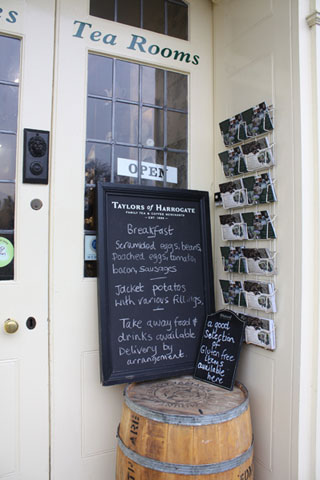 es
Tea Rooms
OPEN
TAYLORS of HARROGATE
FAMILY TEA & COFFEE MERCHANTS
EST. 1886
Breakfast
Scrambled eggs, beans,
poached eggs, tomato,
bacon, sausages
Jacket potatos
with various fillings.
Take away food &
drinks available
Delivery by
arrangement.
a good
Selection
of
Gluten free
items
available
here